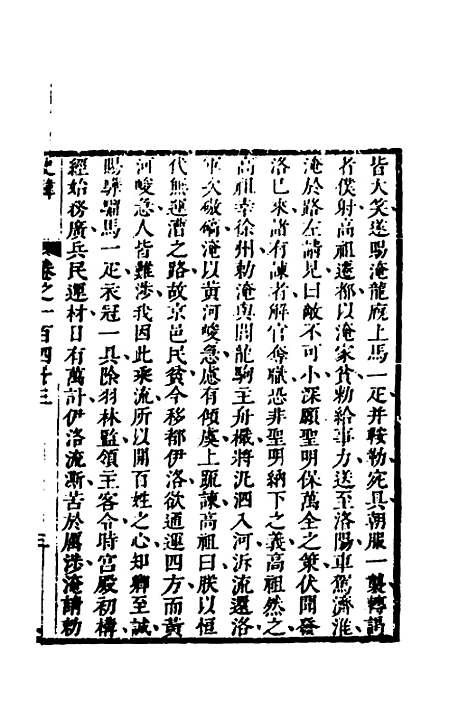 皆大笑遂賜淹龍廐上馬一疋并鞍勒宛具朝服一襲轉謁
者僕射高祖遷都以淹家貧勑給事力送至洛陽車駕濟淮
淹於路左請見曰敵不可小深願聖明保萬全之策伏聞發
洛已來諸有諫者解官奪職恐非聖明納下之義高祖然之
高祖幸徐州勅淹與閭龍駒主舟檝將汎泗入河泝流還洛
軍次碻磝淹以黃河峻急慮有傾虞上疏諫高祖曰朕以恒
代無運漕之路故京邑民貧今移都伊洛欲通運四方而黃
河峻急人皆難涉我因此乘流所以開百姓之心知卿至誠
賜驊騮馬一疋衣冠一具除羽林監領主客令時宫殿初構
經始務廣兵民運材日有萬計伊洛流澌苦於厲涉淹請勅
史緯
卷之一百四十三
三